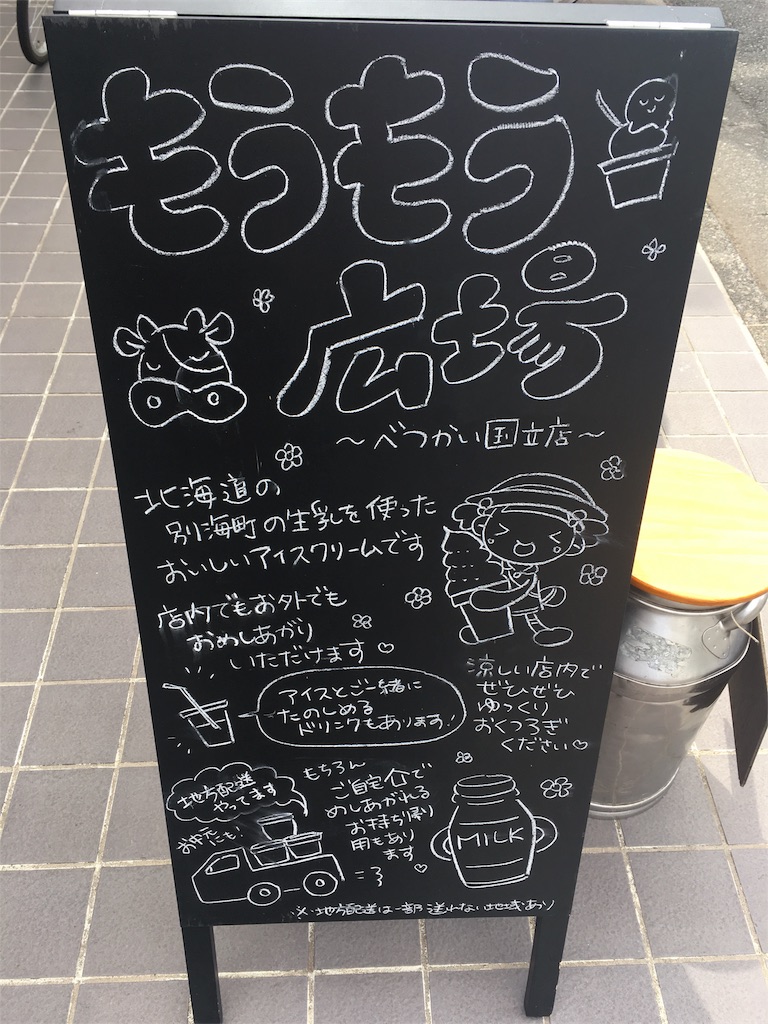 もうもう
広場
～べつかい国立店～
北海道の
別海町の生乳を使った
おいしいアイスクリームです
店内でもお外でも
おめしあがり
いただけます♡
アイスとご一緒に
たのしめる
ドリンクもあります!
涼しい店内で
ぜひぜひ
ゆっくり
おくつろぎ
ください♡
地方配送
やってます
お中元にも!
もちろん
ご自宅で
めしあがれる
お持ち帰り
用もあり
ます♡
MILK
※地方配送は一部送れない地域あり